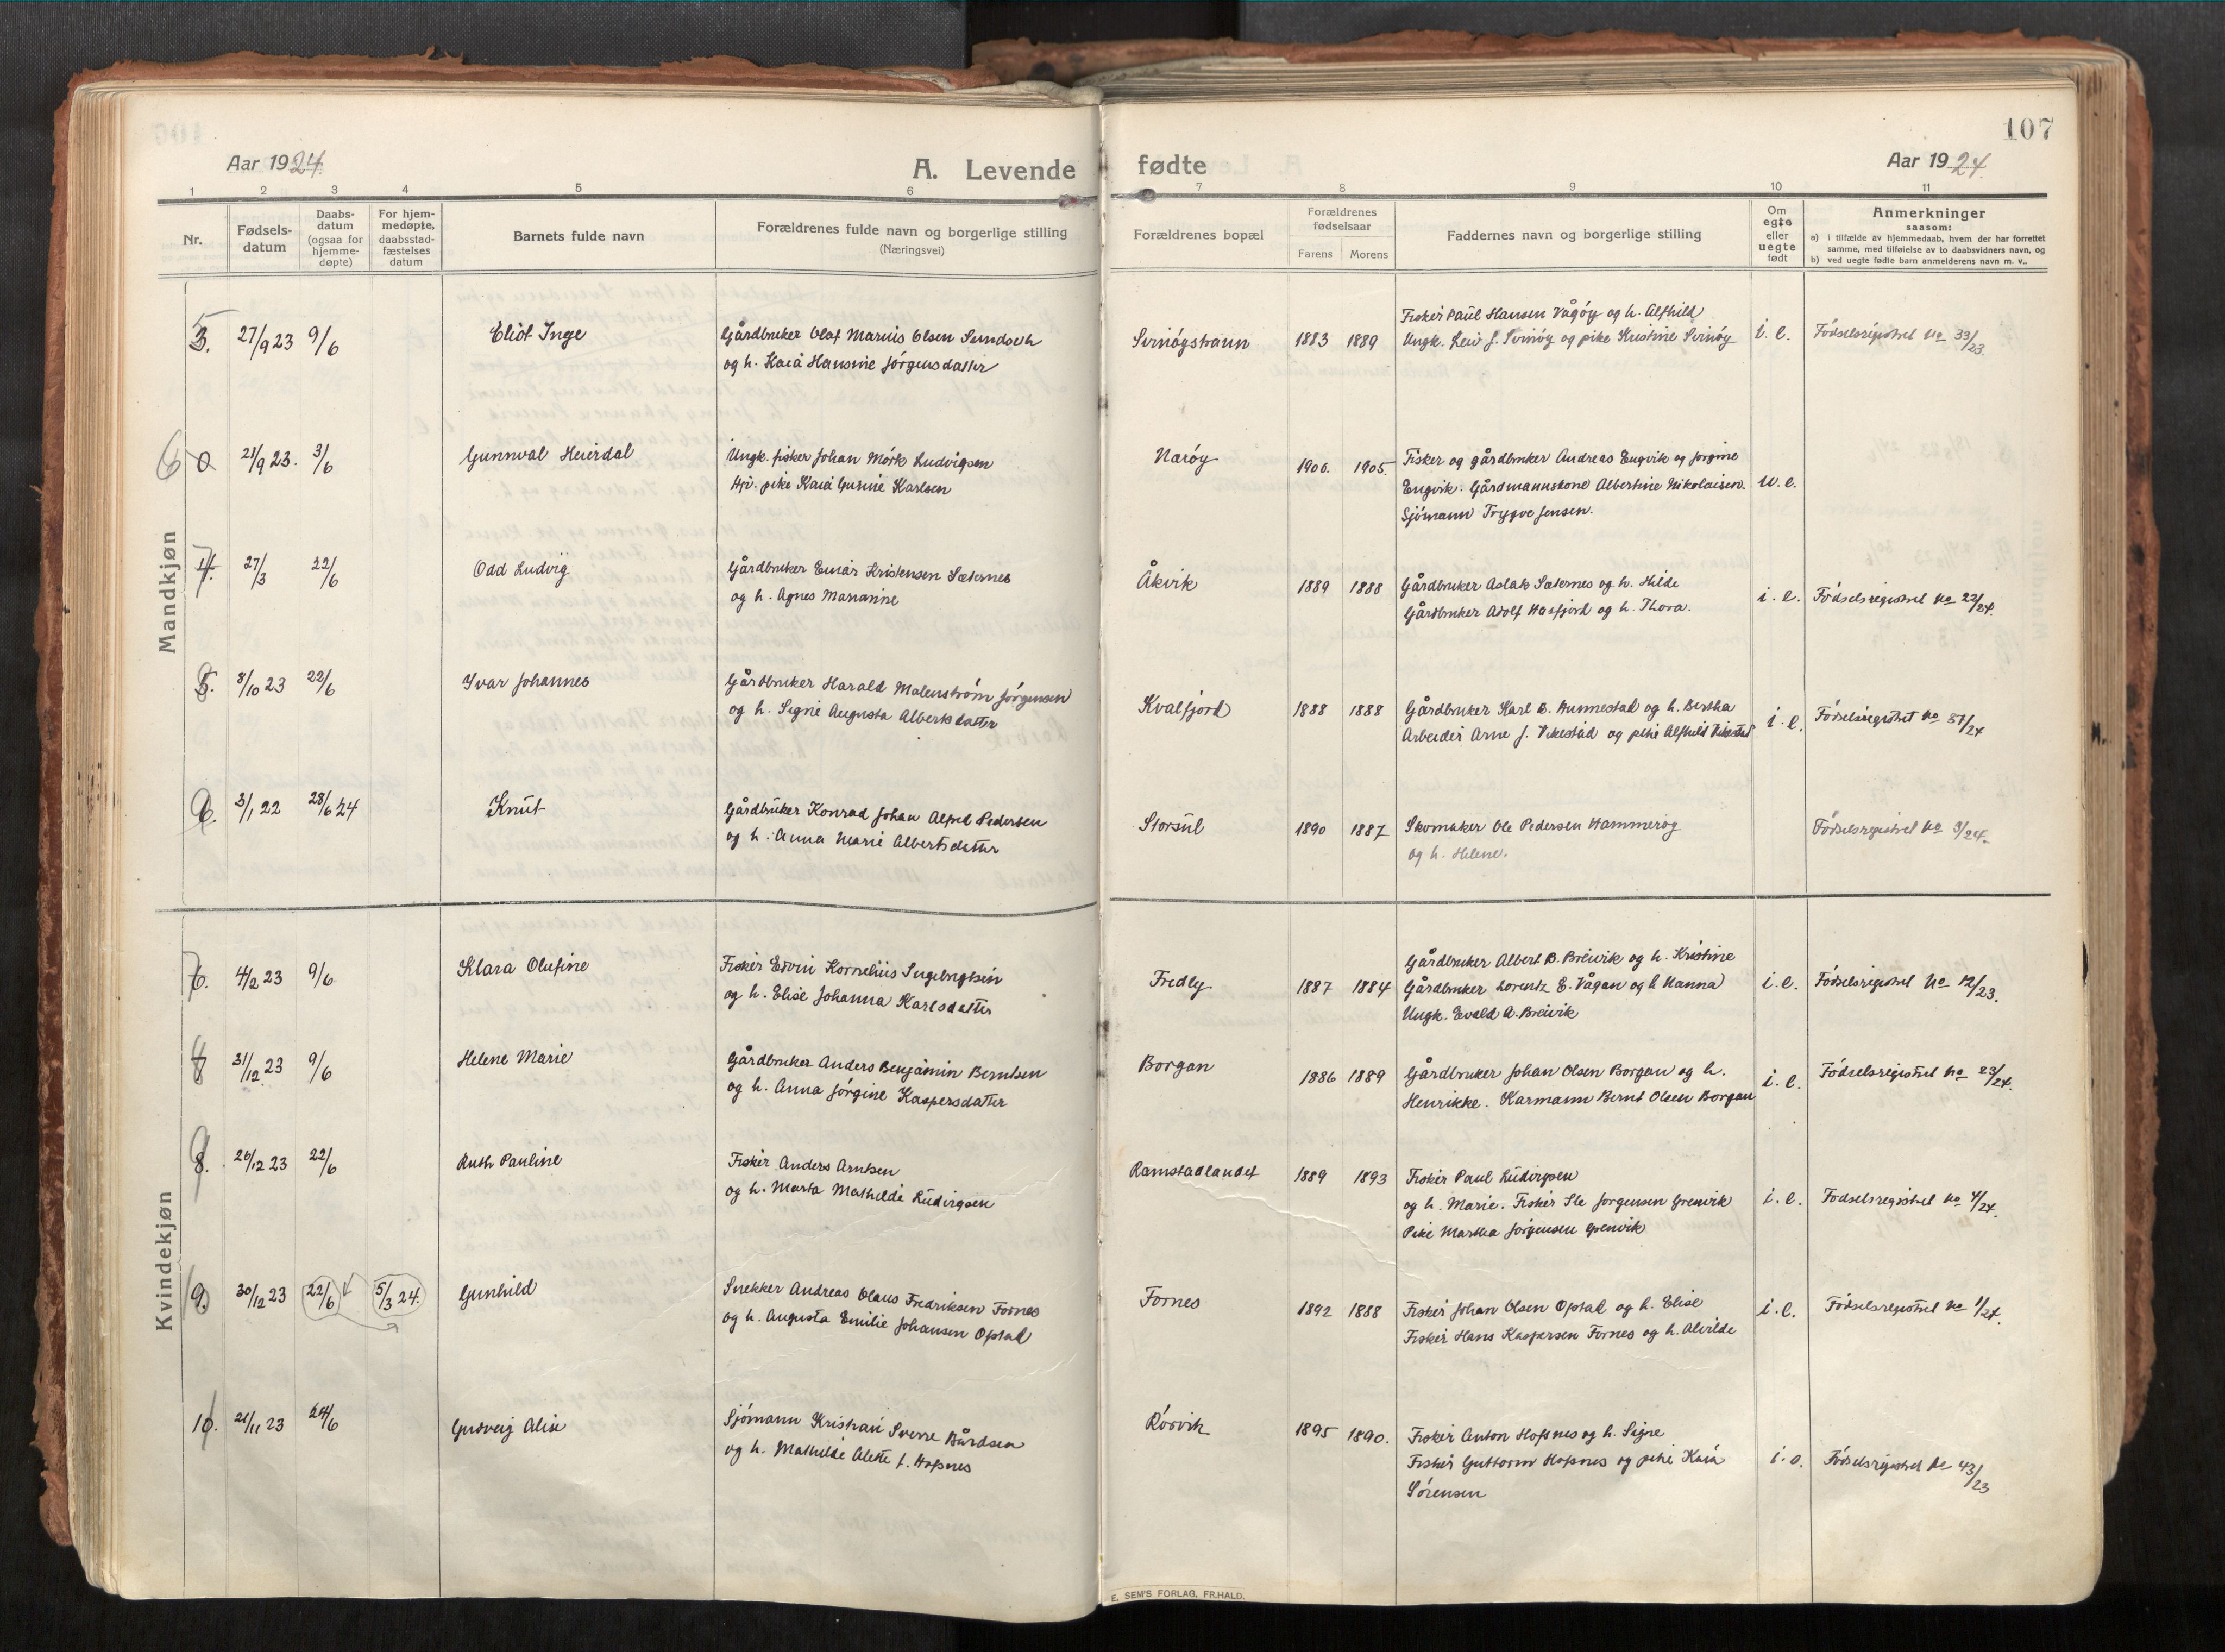 107
Aar 1924.
A. Levende
fødte
Aar 1924.
1 2 3 4 5 6 7 8 9 10 11
Nr.
Fødsels-
datum
Daabs-
datum
(ogsaa for
hjemme-
døpte)
For hjem-
medøpte,
daabsstad-
fæstelses
datum
Barnets fulde navn
Forældrenes fulde navn og borgerlige stilling
(Næringsvei)
Forældrenes bopæl
Forældrenes
fødselsaar
Farens Morens
Faddernes navn og borgerlige stilling
Om
egte
eller
uegte
født
Anmerkninger
saasom:
a) i tilfælde av hjemmedaab, hvem der har forrettet
samme, med tilføielse av to daabsvidners navn, og
b) ved uegte fødte barn anmelderens navn m. v..
Mandkjøn
3. 27/9 23 9/6 Eliot Inge
Gårdbruker Olaf Marius Olsen Sundseth
og h. Kaia Hansine Jørgensdatter
Svinøystraum 1883 1889
Fisker Paul Hansen Vågøy og h. Alfhild
Ungk. Leiv J. Svinøy og pike Kristine Svinøy
i. e. Fødselsregistret No 33/23.
6 21/9 23. 3/6 Gunnval Heirdal
Ungk. fisker Johan Mørk Ludvigsen
Hjv. pike Kaia Gurine Karlsen
Narøy 1906. 1905.
Fisker og gårdbruker Andreas Engvik og Jorgine
Engvik. Gårdmannskone Albertine Nikolaisen.
Sjømann Trygve Jensen.
u. e.
4. 27/3 22/6 Odd Ludvig
Gårdbruker Einar Kristensen Sæternes
og h. Agnes Marianne
Åkvik 1889 1888
Gårdbruker Aslak Sæternes og h. Hilde
Gårdbruker Adolf Hasfjord og h. Thora.
i. e. Fødselsregistret No 22/24.
5. 8/10 23 22/6 Ivar Johannes
Gårdbruker Harald Malenstrøm Jørgensen
og h. Signe Augusta Albertsdatter
Kvalfjord 1888 1888
Gårdbruker Karl B. Hunnestad og h. Bertha
Arbeider Arne J. Vikestad og pike Alfhild Vikestad
i. e. Fødselsregistret No 37/24
6. 3/1 22 28/6 24 Knut
Gårdbruker Konrad Johan Alfred Pedersen
og h. Anna Marie Albertsdatter
Storsul 1890 1887
Skomaker Ole Pedersen Hammerøy
og h. Helene.
Fødselsregistret No 3/24.
Kvindekjøn
6. 4/2 23 9/6 Klara Olufine
Fisker Edvin Kornelius Ingebrigtsen
og h. Elise Johanna Karlsdatter
Fredly 1887 1884
Gårdbruker Albert B. Breivik og h. Kristine
Gårdbruker Lorentz E. Vågan og h. Hanna
Ungk. Evald A. Breivik
i. e. Fødselsregistret No 12/23.
8 31/12 23 9/6 Helene Marie
Gårdbruker Anders Benjamin Berntsen
og h. Anna Jørgine Kaspersdatter
Borgan 1886 1889
Gårdbruker Johan Olsen Borgan og h.
Henrikke. Karmann Bernt Olsen Borgan
i. e. Fødselsregistret No 23/24.
8. 26/12 23 22/6 Ruth Pauline
Fisker Anders Arntsen
og h. Marta Mathilde Ludvigsen
Ramstadlandet 1889 1893
Fisker Paul Ludvigsen
og h. Marie. Fisker Ole Jørgensen Grenvik
Pike Martha Jørgensen Grenvik
i. e. Fødselsregistret No 4/24.
9. 30/12 23 22/6 5/3 24. Gunhild
Snekker Andreas Olaus Fredriksen Fornes
og h. Augusta Emilie Johansen Opstad
Fornes 1892 1888
Fisker Johan Olsen Opstad og h. Elise
Fisker Hans Kaspersen Fornes og h. Alvilde
i. e. Fødselsregistret No 1/24.
10. 21/11 23 24/6 Gudveig Alise
Sjømann Kristian Sverre Bårdsen
og h. Mathilde Alette f. Hofsnes
Rørvik 1895 1890.
Fisker Anton Hofsnes og h. Signe
Fisker Guttorm Hofsnes og pike Kaia
Sørensen
i. e. Fødselsregistret No 43/23
E. SEM'S FORLAG, FR.HALD.